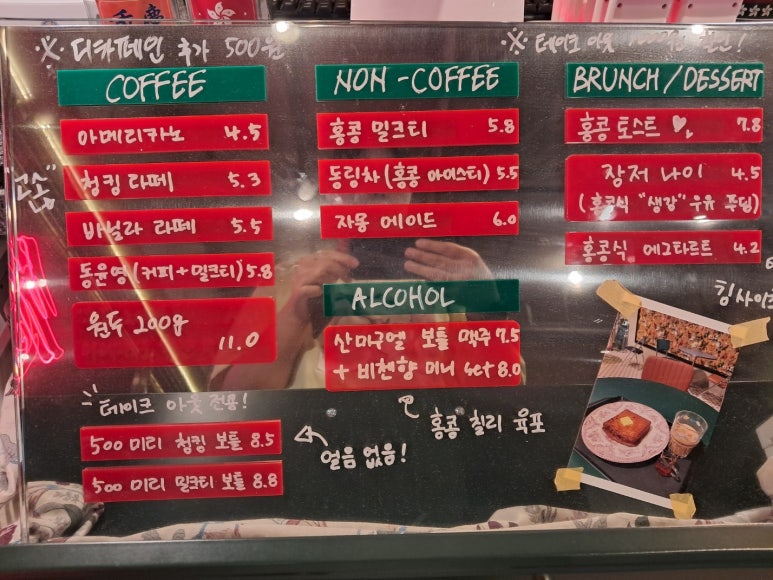 디카페인 추가 500원
COFFEE
아메리카노 4.5
청킹 라떼 5.3
바닐라 라떼 5.5
동윤영 (커피+밀크티) 5.8
원두 200g 11.0
테이크 아웃 전용!
500미리 청킹 보틀 8.5
500미리 밀크티 보틀 8.8
얼음 없음!
NON-COFFEE
홍콩 밀크티 5.8
동링차 (홍콩 아이스티) 5.5
자몽 에이드 6.0
ALCOHOL
산미구엘 보틀 맥주 7.5
+ 비첸향 미니 set 8.0
홍콩 칠리 육포
테이크 아웃
BRUNCH/DESSERT
홍콩 토스트 7.8
장저 나이 4.5
(홍콩식 "생강" 우유 푸딩)
홍콩식 에그타르트 4.2